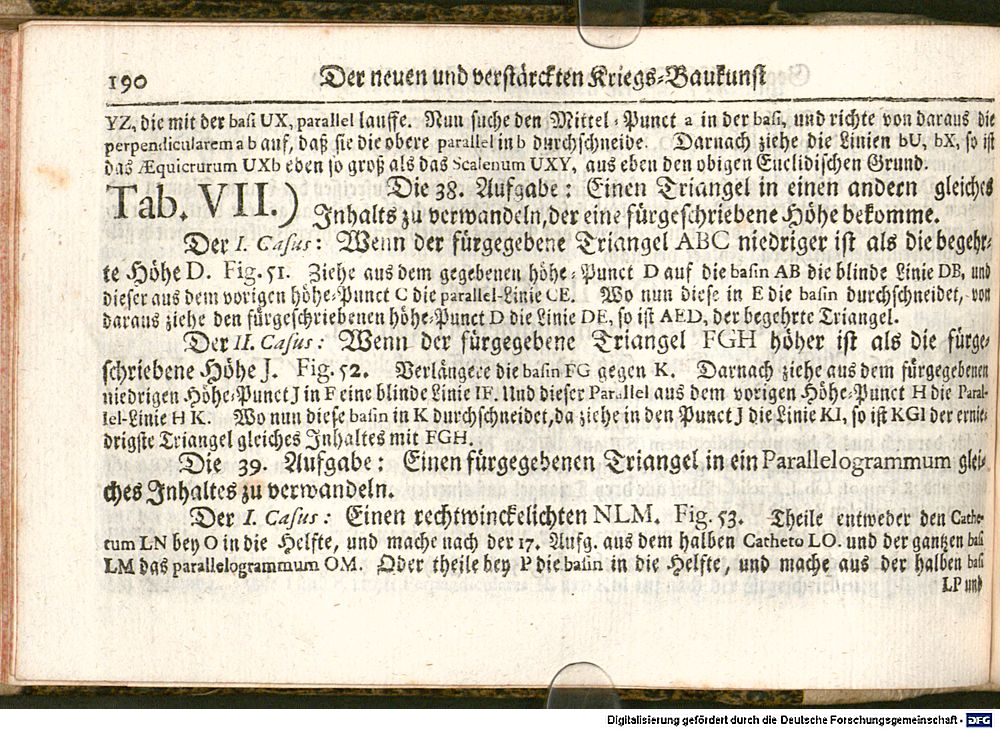 190 Der neuen und verstärckten Kriegs-Baukunst
YZ, die mit der basi UX, parallel lauffe. Nun suche den Mittel-Punct a in der basi, und richte von daraus die
perpendicularem a b auf, daß sie die obere parallel in b durchschneide. Darnach ziehe die Linien bU, bX, so ist
das Æquicrurum UXb eben so groß als das Scalenum UXY, aus eben den obigen Euclidischen Grund.
Tab. VII.) Die 38. Aufgabe: Einen Triangel in einen andern gleiches
Inhalts zu verwandeln, der eine fürgeschriebene Höhe bekomme.
Der I. Casus: Wenn der fürgegebene Triangel ABC niedriger ist als die begehr-
te Höhe D. Fig. 51. Ziehe aus dem gegebenen höhe-Punct D auf die basin AB die blinde Linie DB, und
dieser aus dem vorigen höhe-Punct C die parallel-Linie CE. Wo nun diese in E die basin durchschneidet, von
daraus ziehe den fürgeschriebenen höhe-Punct D die Linie DE, so ist AED, der begehrte Triangel.
Der II. Casus: Wenn der fürgegebene Triangel FGH höher ist als die fürge-
schriebene Höhe J. Fig. 52. Verlängere die basin FG gegen K. Darnach ziehe aus dem fürgegebenen
niedrigen Höhe-Punct J in F eine blinde Linie IF. Und dieser Parallel aus dem vorigen Höhe-Punct H die Paral-
lel-Linie H K. Wo nun diese basin in K durchschneidet, da ziehe in den Punct J die Linie KI, so ist KGI der ernie-
drigste Triangel gleiches Inhaltes mit FGH.
Die 39. Aufgabe: Einen fürgegebenen Triangel in ein Parallelogrammum glei-
ches Inhaltes zu verwandeln.
Der I. Casus: Einen rechtwinckelichten NLM. Fig. 53. Theile entweder den Cathe-
tum LN bey O in die Helfte, und mache nach der 17. Aufg. aus dem halben Catheto LO. und der gantzen basi
LM das parallelogrammum OM. Oder theile bey P die basin in die Helfte, und mache aus der halben basi
LP und
Digitalisierung gefördert durch die Deutsche Forschungsgemeinschaft - DFG